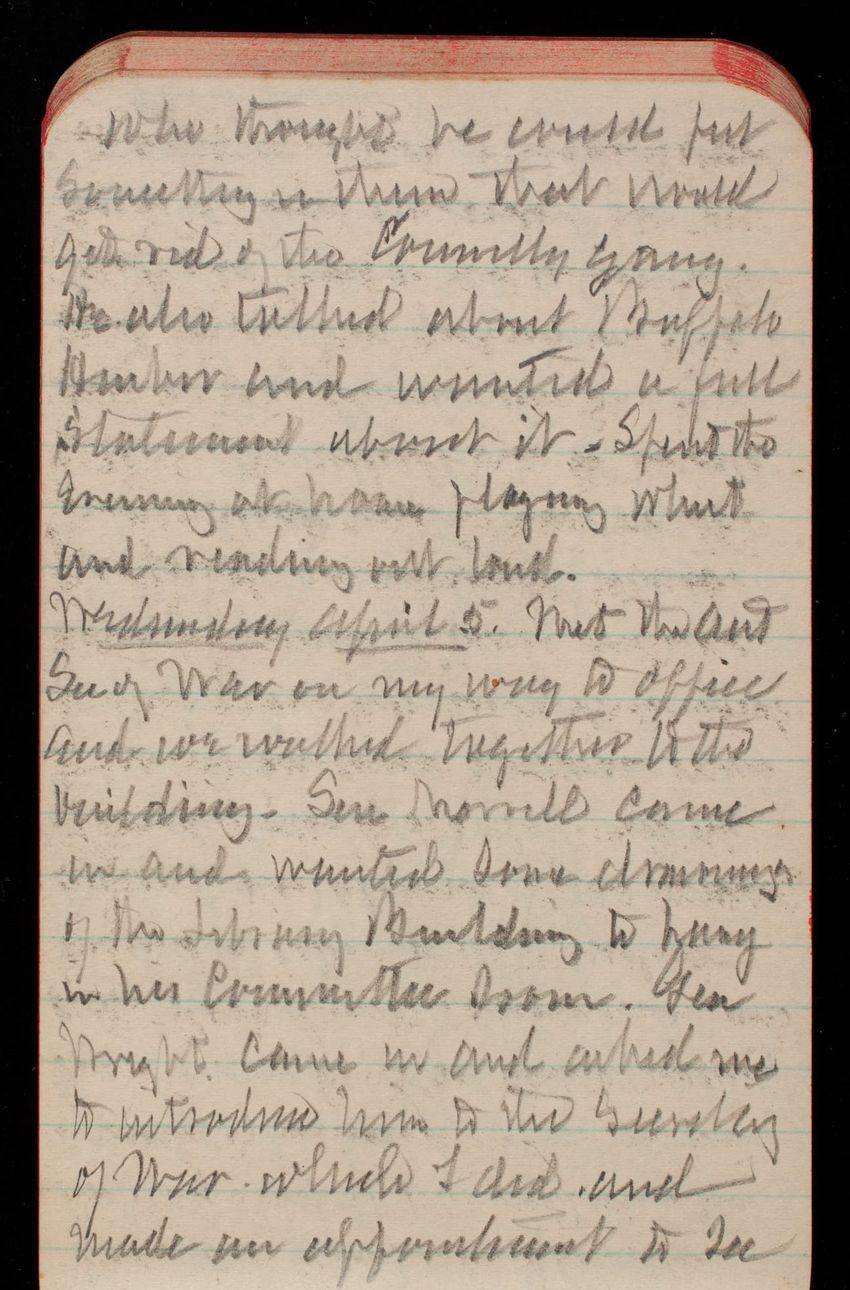 Who thought he could put
Something in them that would
get rid of the Connelly gang.
He also talked about Buffalo
Harbor and wanted a full
Statement about it - Spent the
Evening at home playing whist
and reading out loud.
Wednesday April 5. Met the asst
Sec of War on my way to office
and we walked together to the
building - Sen Morrill came
in and wanted some drawings
of the Library Building to hang
in his Committee room. Gen
Wright came in and asked me
to introduce him to the Secretary
of War. which I did. and
made an appointment to see